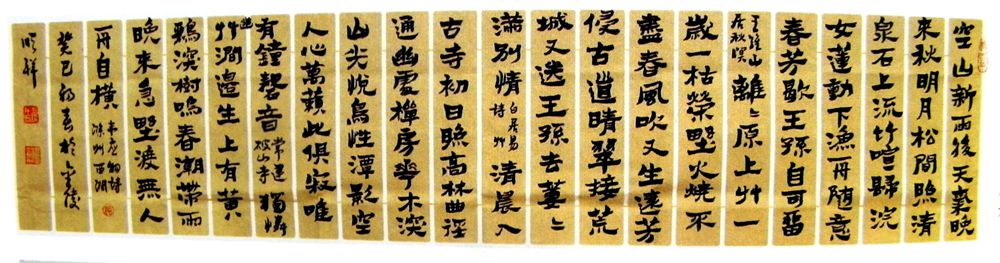 空山新雨後天氣晚
来秋明月松間照清
泉石上流竹喧歸浣
女蓮動下漁舟随意
春芳歇王孫自可留
王維山居秋暝 離〻原上艸一
歲一枯榮野火燒不
盡春風吹又生遠芳
侵古道晴翠接荒
城又送王孫去萋〻
滿別情 白居易詩艸 清晨入
古寺初日照高林曲徑
通幽處禪房花木深
山光悅鳥性潭影空
人心萬籟此俱寂唯
有鐘磬音 常建破山寺 獨憐
幽艸澗邊生上有黄
鸝深樹鳴春潮帶雨
晚来急野渡無人
舟自横 韋應物詩滁州西澗
癸巳初春於金陵
順祥